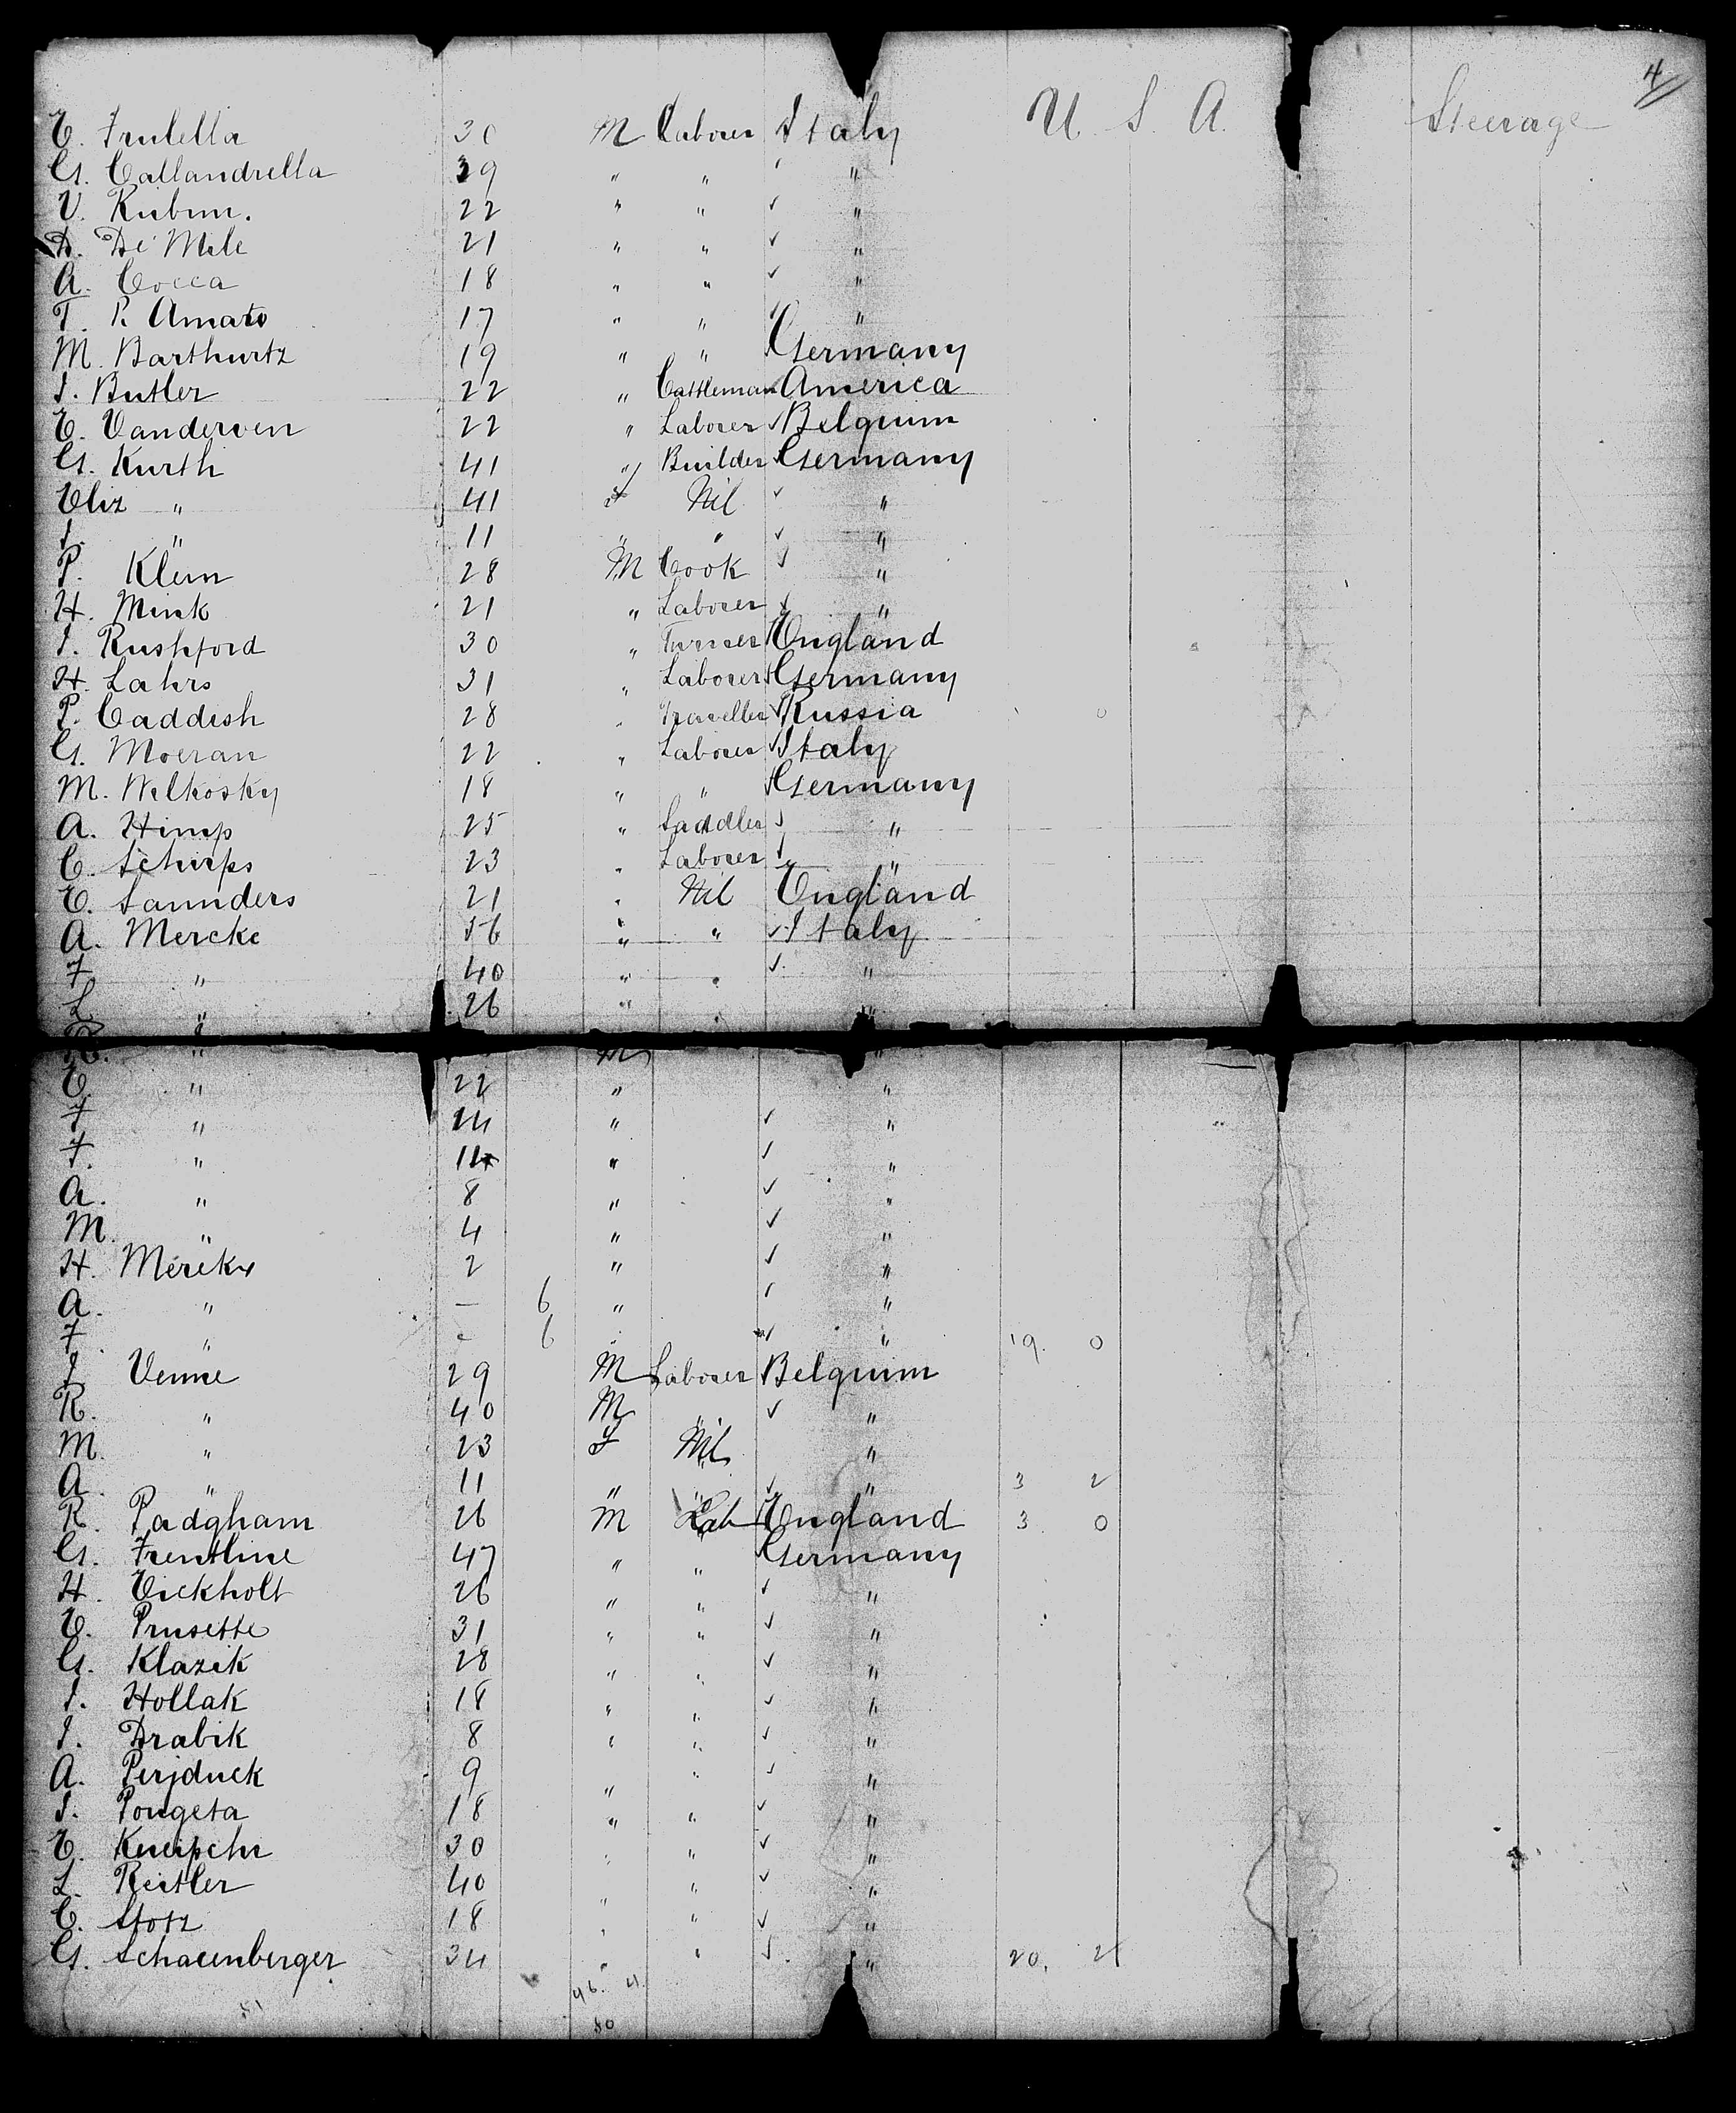 4
U. S. A. Steerage
E. Frulella 30 M Laborer Italy
G. Callandrella 39 " " "
V. Rubim. 22 " " "
D. De Mele 21 " " "
A. Cocca 18 " " "
T. P. Amato 17 " " "
M. Barthurtz 19 " " Germany
J. Butler 22 " Cattleman America
E. Vanderven 22 " Laborer Belgium
G. Kurth 41 " Builder Germany
Eliz " 41 F Nil "
J. " 11 " " "
P. Klein 28 M Cook "
H. Mink 21 " Laborer "
J. Rushford 30 " Turner England
H. Lahrs 31 " Laborer Germany
P. Caddish 28 " Traveller Russia
G. Moeran 22 " Laborer Italy
M. Welkosky 18 " " Germany
A. Himp 25 " Saddler "
C. Schirps 23 " Laborer "
E. Saunders 21 " Nil England
A. Mercke 56 " " Italy
F " 40 " " "
L " 26 " " "
" M "
E " 22 " "
F " 24 " "
F. " 14 " "
A. " 8 " "
M. " 4 " "
H. Mercke 2 " "
A. " — 6 " "
F " - 6 " " 19. 0
J Venne 29 M Laborer Belgium
R. " 40 M " "
M. " 23 F Nil "
A. " 11 " " " 3 2
R. Padgham 26 M Lab England 3. 0
G. Frentline 47 " " Germany
H. Eickholt 26 " " "
E. Prusette 31 " " "
G. Klazik 28 " " "
J. Hollak 18 " " "
J. Drabik 8 " " "
A. Perjduck 9 " " "
J. Pongeta 18 " " "
E. Kneipchr 30 " " "
L. Reitler 40 " " "
C. Stotz 18 " " "
G. Schauenberger 34 " " " 20. 21
46. 4.
50